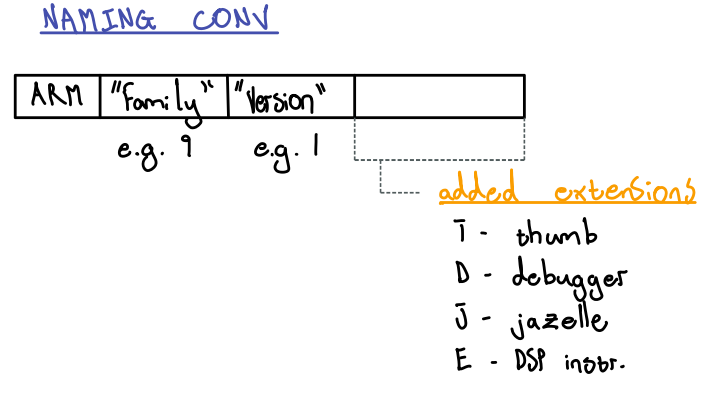 NAMING CONV
ARM "Family" "Version"
e.g. 9 e.g. 1
added extensions
T - thumb
D - debugger
J - jazelle
E - DSP instr.